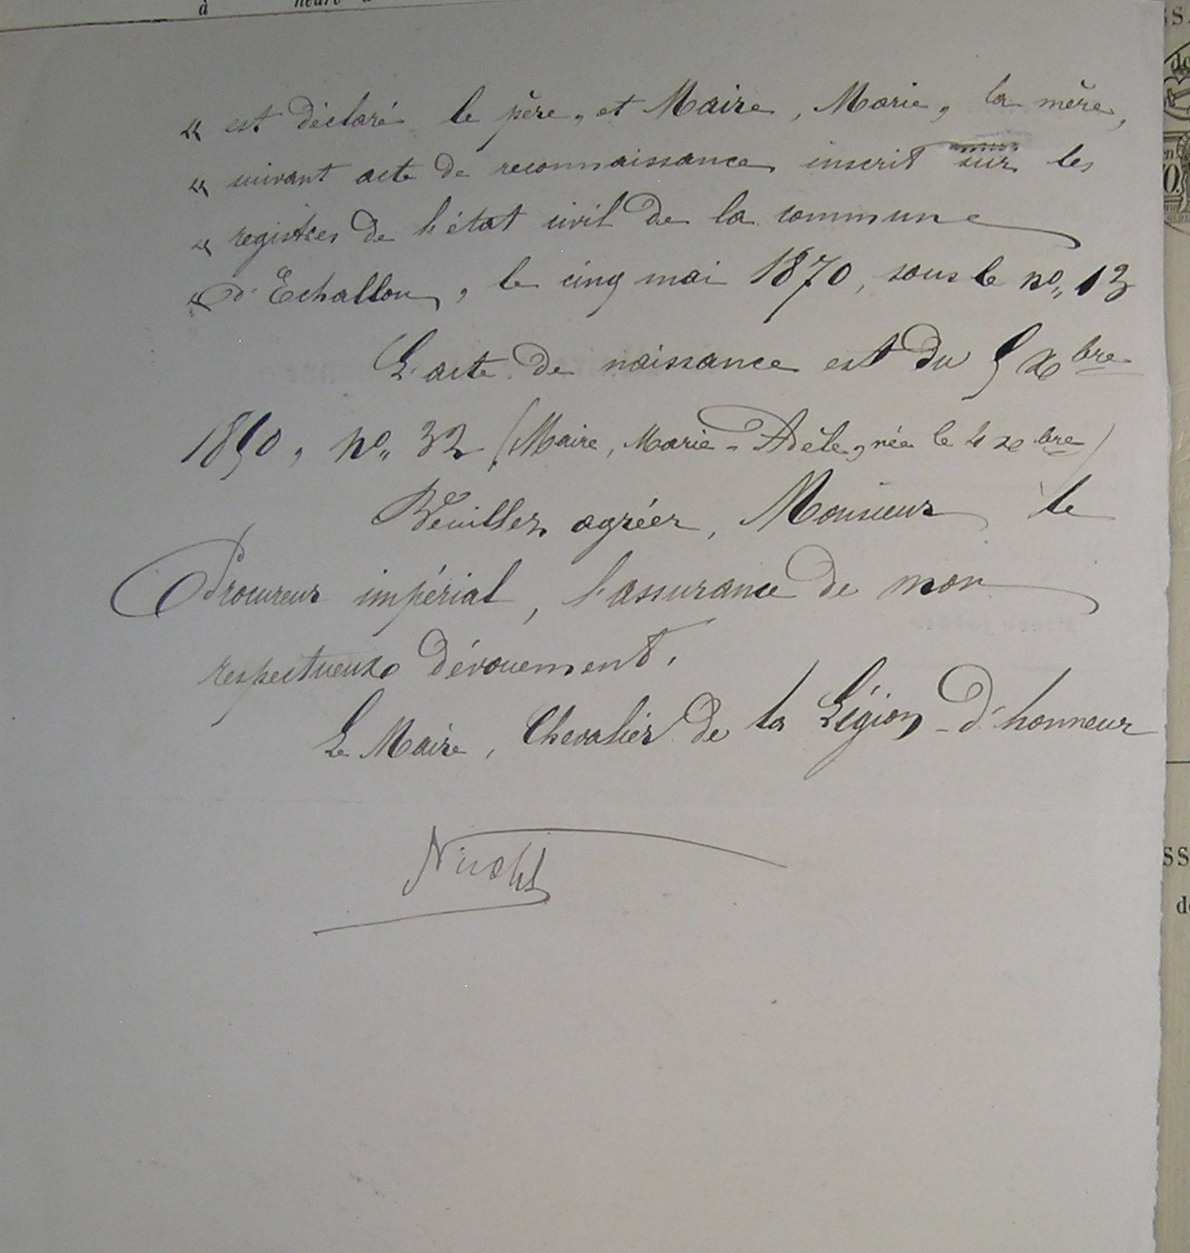 à heure
« est déclaré le père, et Maire, Marie, la mère,
« suivant acte de reconnaissance inscrit sur les
« registres de l'état civil de la commune
« d'Echallon, le cinq mai 1870, sous le no, 13
L'acte de naissance est du 5 Xbre
1850, no, 32 (Maire, Marie-Adèle, née le 4 xbre)
Veuillez agréer, Monsieur le
Procureur impérial, l'assurance de mon
respectueux dévouement.
Le Maire, Chevalier de la Légion-d'honneur